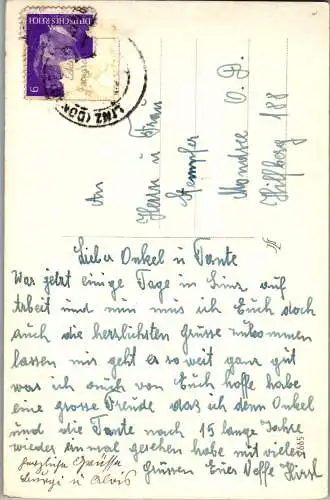 DEUTSCHES REICH
6
LINZ (DONAU
An
Herrn u Frau
Stempfer
Mondsee O. D.
Hilfberg 188
Lieber Onkel u Tante
War jetzt einige Tage in Linz auf
Arbeit und nun mus ich Euch doch
auch die herrlichsten Grüsse zukommen
lassen mir geht es so weit ganz gut
was ich auch von Euch hoffe habe
eine grosse Freude das ich den Onkel
und die Tante nach 15 lange Jahre
wieder einmal gesehen habe mit vielen
Grüssen Euer Neffe Hirsl
herzliche Grüsse
und Alois
A165